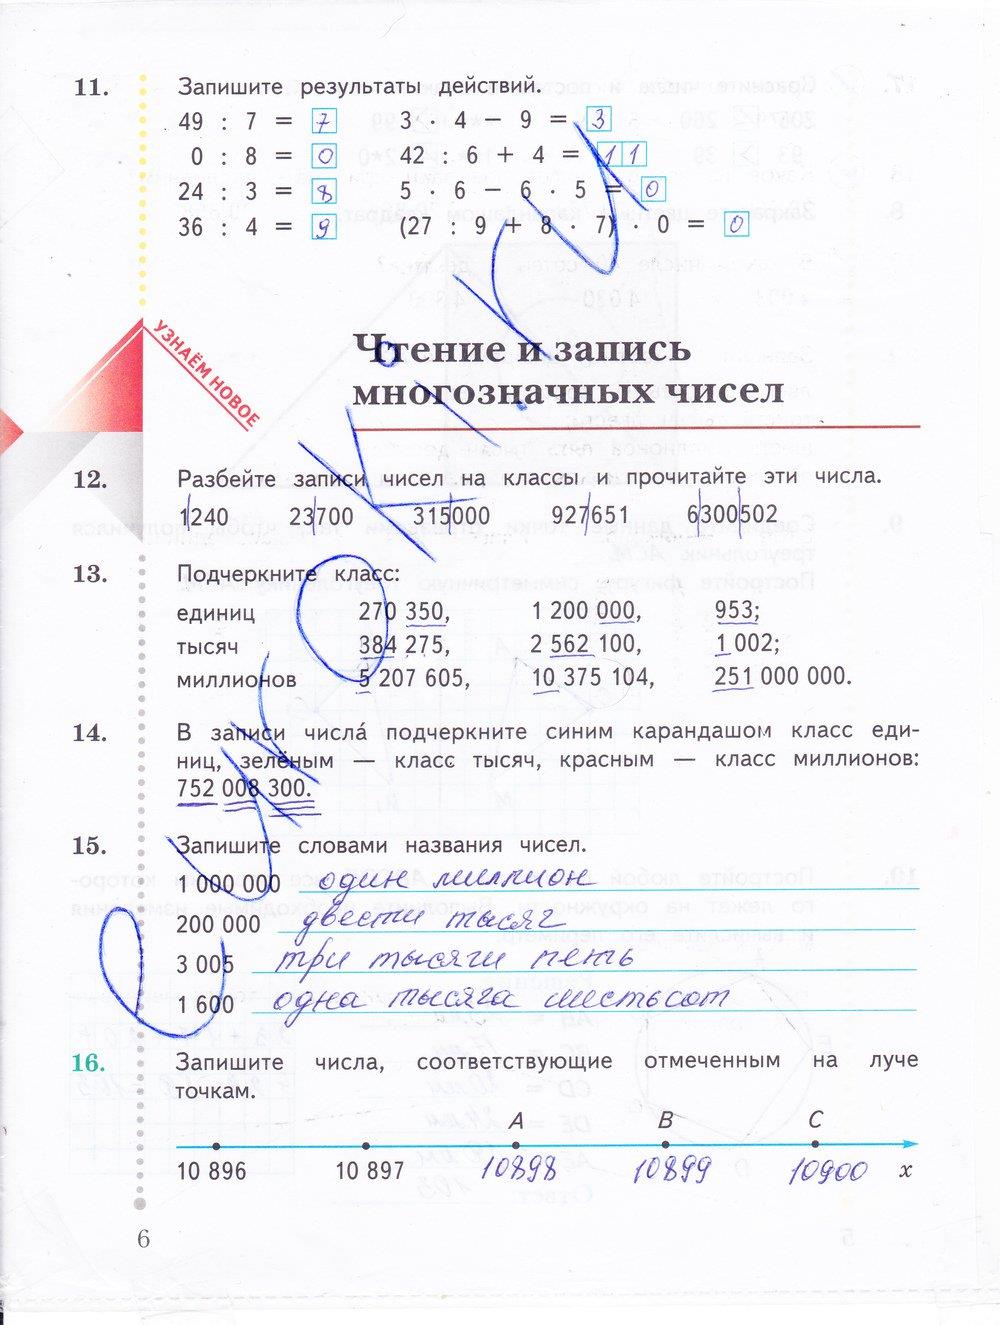 11. Запишите результаты действий.
49 : 7 = 7 3 · 4 − 9 = 3
0 : 8 = 0 42 : 6 + 4 = 11
24 : 3 = 8 5 · 6 − 6 · 5 = 0
36 : 4 = 9 (27 : 9 + 8 · 7) · 0 = 0
УЗНАЁМ НОВОЕ
Чтение и запись
многозначных чисел
12. Разбейте записи чисел на классы и прочитайте эти числа.
1|240 23|700 315|000 927|651 6|300|502
13. Подчеркните класс:
единиц 270 350, 1 200 000, 953;
тысяч 384 275, 2 562 100, 1 002;
миллионов 5 207 605, 10 375 104, 251 000 000.
14. В записи числа́ подчеркните синим карандашом класс еди-
ниц, зелёным — класс тысяч, красным — класс миллионов:
752 008 300.
15. Запишите словами названия чисел.
1 000 000 один миллион
200 000 двести тысяч
3 005 три тысячи пять
1 600 одна тысяча шестьсот
16. Запишите числа, соответствующие отмеченным на луче
точкам.
A B C
10 896 10 897 10898 10899 10900 x
6